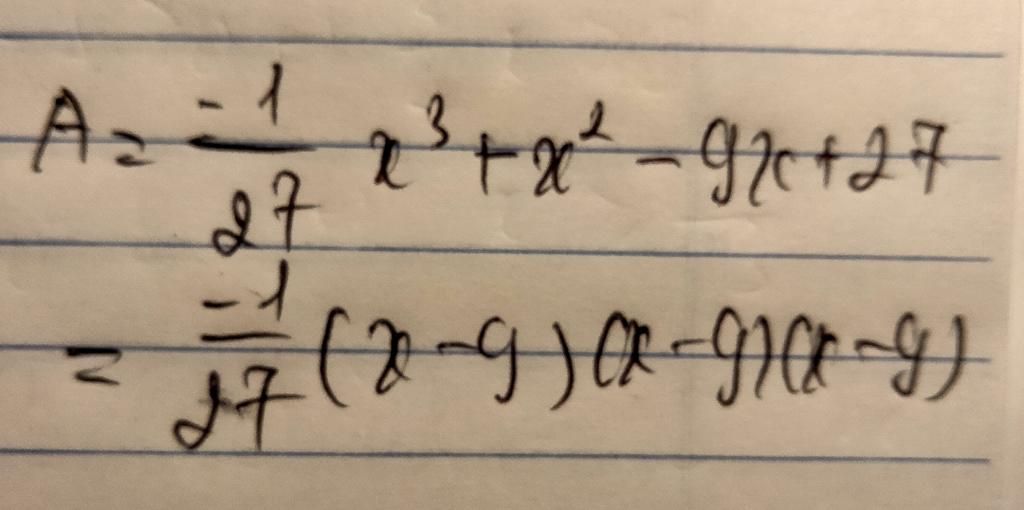 A = \frac{-1}{27} x^3 + x^2 - 9x + 27
= \frac{-1}{27} (x - 9)(x - 9)(x - 9)